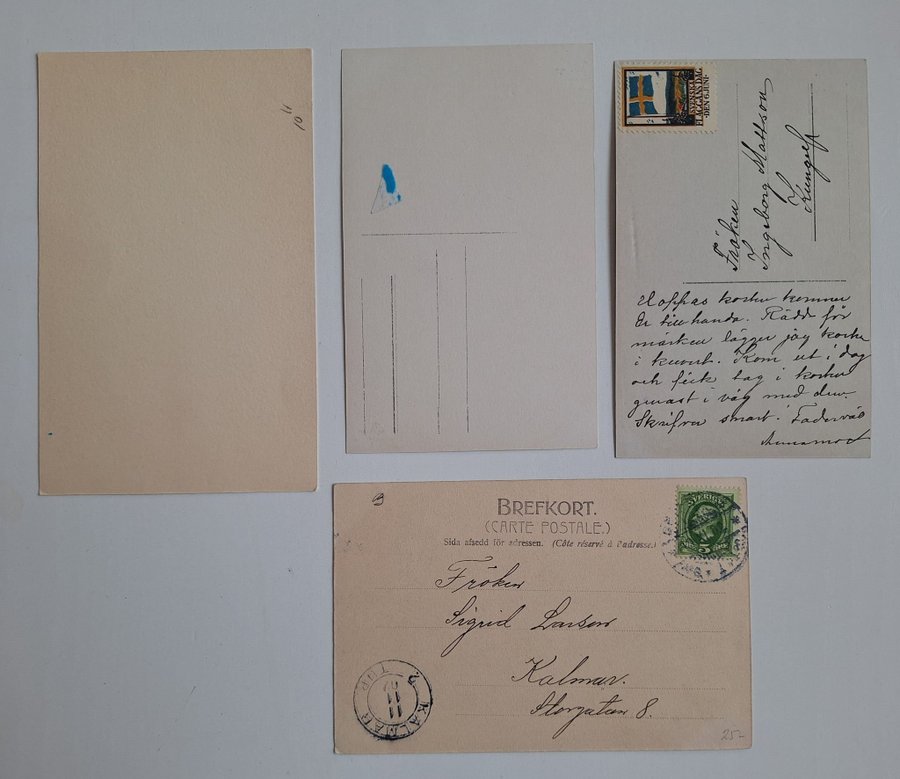 10
SVENSKA
FLAGGANS DAG
-DEN 6 JUNI-
Fröken
Ingeborg Mattson
Kungelf
Hoppas korten kommer
Er till handa. Rädd för
märken lägger jag korten
i kuvert. Kom ut i dag
och fick tag i korten
genast i väg med dem.
Skrifver snart! Farväl
BREFKORT.
(CARTE POSTALE.)
Sida afsedd för adressen. (Côte réservé à l'adresse.)
SVERIGE
5
Fröken
Sigrid Larson
Kalmar.
Storgatan 8.
KALMAR
TUR
11
11
25-